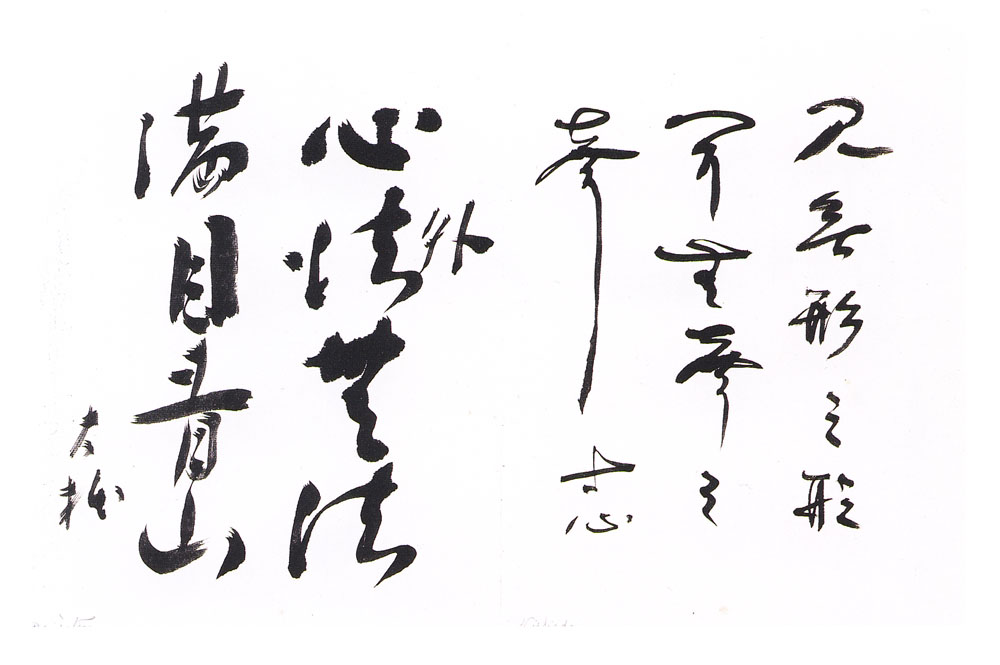 見無形之形
聞無聲之
聲 寸心
心外法無法
満目青山
大拙